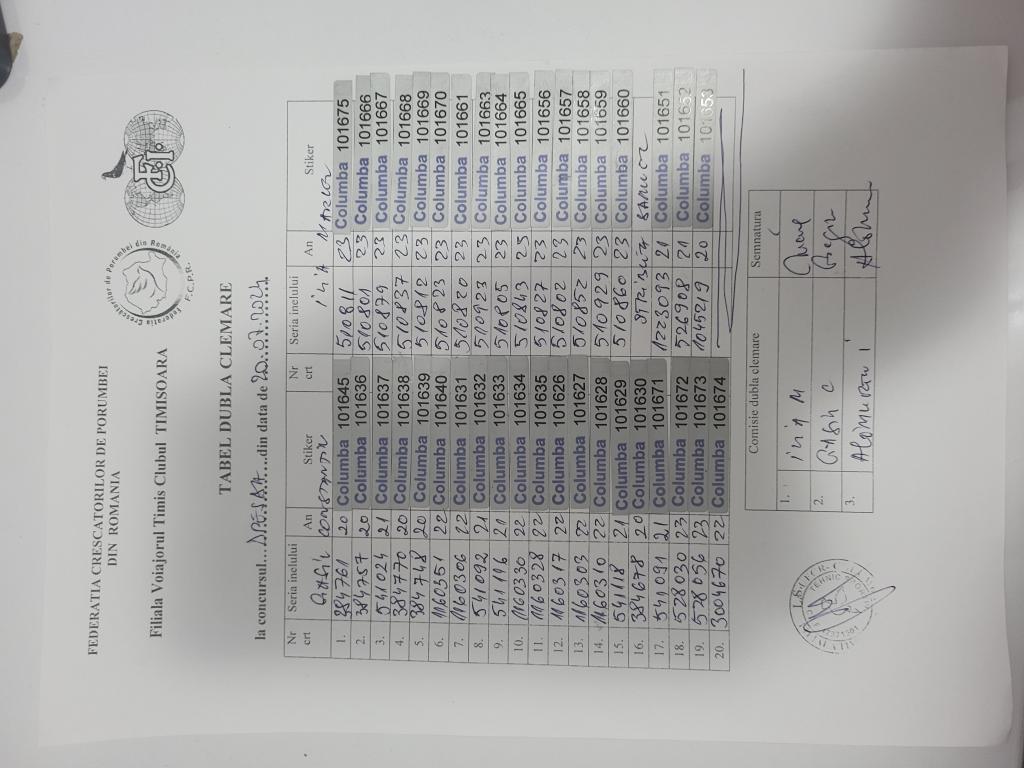 FEDERATIA CRESCATORILOR DE PORUMBEI
DIN ROMANIA
Filiala Voiajorul Timis Clubul TIMISOARA
Federatia Crescatorilor de Porumbei din România
F.C.P.R.
FCI
TABEL DUBLA CLEMARE
la concursul... ...din data de 20.07.2024
Nr crt Seria inelului An Stiker Nr crt Seria inelului An Stiker
CONSTANTIN
1. 384761 20 Columba 101645 510811 23 Columba 101675
2. 384757 20 Columba 101636 510801 23 Columba 101666
3. 541024 21 Columba 101637 510879 23 Columba 101667
4. 384770 20 Columba 101638 510837 23 Columba 101668
5. 384748 20 Columba 101639 510812 23 Columba 101669
6. 1160351 22 Columba 101640 510823 23 Columba 101670
7. 1160306 22 Columba 101631 510820 23 Columba 101661
8. 541092 21 Columba 101632 510923 23 Columba 101663
9. 541116 21 Columba 101633 510805 23 Columba 101664
10. 1160330 22 Columba 101634 510843 23 Columba 101665
11. 1160328 22 Columba 101635 510827 23 Columba 101656
12. 1160317 22 Columba 101626 510802 23 Columba 101657
13. 1160303 22 Columba 101627 510852 23 Columba 101658
14. 1160310 22 Columba 101628 510929 23 Columba 101659
15. 541118 21 Columba 101629 510860 23 Columba 101660
16. 384678 20 Columba 101630
17. 541091 21 Columba 101671 1223093 21 Columba 101651
18. 528030 23 Columba 101672 526908 21 Columba 101652
19. 528056 23 Columba 101673 1045219 20 Columba 101653
20. 3004670 22 Columba 101674
Comisie dubla clemare Semnatura
1.
2.
3.